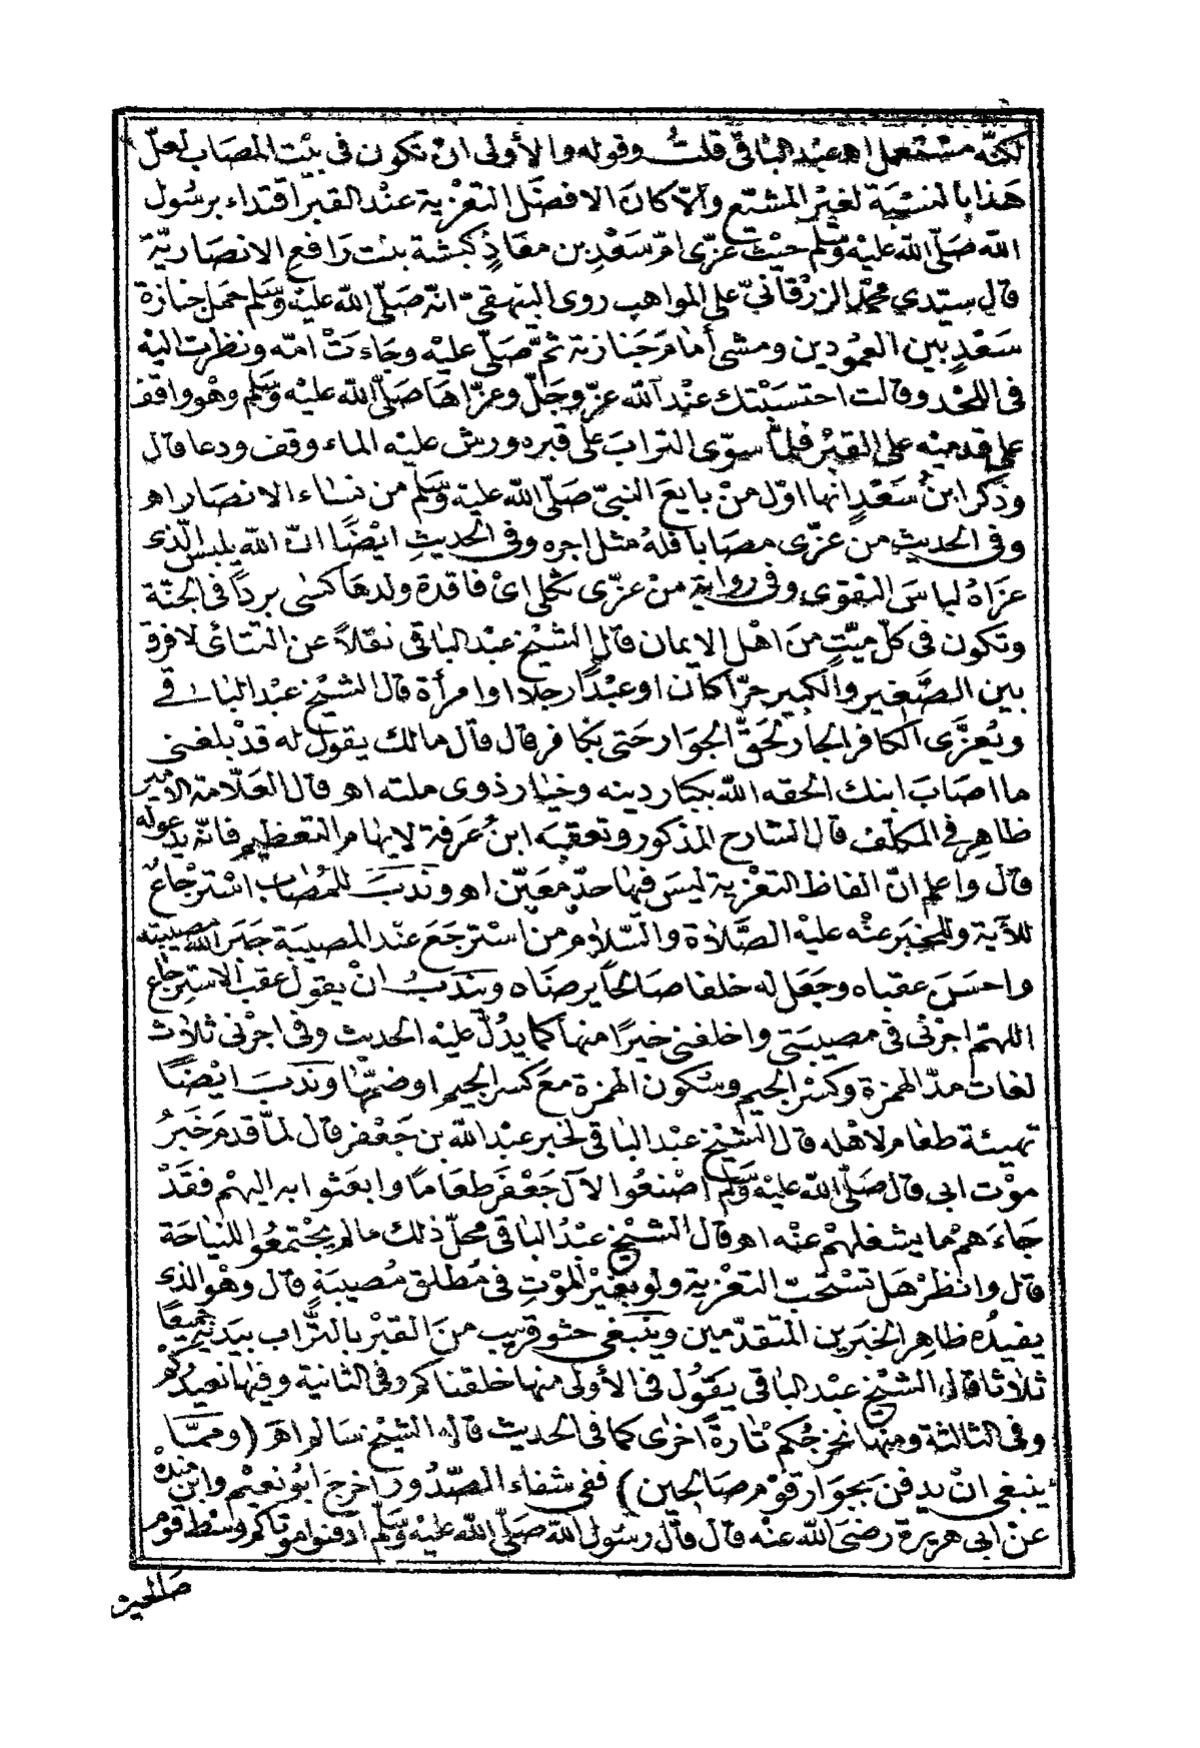 لكنّه مستعمل اهـ عبد الباقى قلتُ وقوله والأولى ان تكون فى بيْت المصَاب لعلّ
هَذا بالنسْبَة لغيْر المشيّع وَالاّ كانَ الافضَل التعْزية عنْد القبْر اقتداء برسُول
الله صَلّى الله عليْه وسَلم حيْث عزّى امّ سَعْدِ بن معَاذٍ كبشة بنْت رَافع الانصَاريّة
قال سيّدي محمّد الزرْقانيّ على المواهب روى البيهقيّ انّه صَلّى الله عليْه وسَلم حمل جنازة
سَعْدٍ بين العمُودين ومشى أمَام جَنازته ثمّ صَلّى عليْه وجَاءَتْ امّه ونظرت اليْه
فى اللحْد وقالت احتسَبْتك عنْد الله عزّ وجَلّ وعزّاهَا صَلّى الله عليْه وسَلم وهْو واقف
على قدميْه على القبْر فلمّا سوّى الترابَ على قبره ورش عليْه الماء وقف ودعا قال
وذكر ابنُ سَعْدٍ انها اوّل منْ بايعَ النبىّ صَلّى الله عليْه وسَلم من نسَاء الانصَار اهـ
وفى الحديث من عزّى مصَاباً فلهُ مثل اجره وفى الحديثِ ايْضًا انّ الله يلبس الّذى
عزّاهُ لباسَ التقوى وفى رواية منْ عزّى ثكلى اىْ فاقدة ولدهَا كسى برداً فى الجنّة
وتكون فى كلّ ميّتٍ منَ اهْل الايمان قال الشيْخ عبْد الباقى نقلاً عن التتائى لا فرق
بين الصَّغير والكبير حرّاً كانَ اوعبْدًا رجلاً اوامرأة قال الشيْخ عبْد الباقى
ويُعزَّى الكافر الجار لحقّ الجوَار حَتى بكافر قال قال مالك يقول له قدْ بلغنى
ما اصَابَ ابنك الحقه الله بكبار دينه وخيَار ذوى ملته اهـ قال العَلّامة الامير
ظاهِر فى المكلّف قال الشارح المذكور وتعقبَه ابنُ عَرفة لايهام التعظيم فانّه يدعوله
قال واعلم انّ الفاظ التعْزية ليسَ فيها حدّ معَيّن اهـ وندَبَ للمُصَاب اسْترْجَاعٌ
للآية وللخبَر عنْه عليْه الصَّلاة والسّلام من اسْترجَعَ عنْد المصيبَة جبَر الله مصيبته
واحسَنَ عقباه وجَعَل له خلفا صَالحاً يرضَاه ويندَبُ انْ يقول عقب الاسترجَاع
اللهمّ اجرْنى فى مصيبَتى واخلفنى خيرًا منها كما يدُلّ عليْه الحديث وفى اجرْنى ثلاث
لغات مدّ الهمزة وكسْر الجيم وسُكون الهمزة معَ كسر الجيم اوضمّها وندَبَ ايْضًا
تهيئة طعَام لاهْله قال الشيْخ عبْد الباقى لخبر عبْد الله بن جَعْفر قال لمّا قدم خَبَرُ
موْت ابى قال صَلّى الله عليْه وسَلم اصْنعُوا لآل جَعْفر طعَامًا وابعَثوا به اليهمْ فقَدْ
جَاءَهمْ ما يشغلهمْ عنْه اهـ قال الشيْخ عبْدُ الباقى محلّ ذلك ما لم يجْتمعُوا للنيَاحَة
قال وانظرْ هَل تسْتحبّ التعْزية ولو بغيْر الموْت فى مُطلق مُصيبَةٍ قال وهْو الذى
يفيدُه ظاهِر الخبَرين المتقدّمين وينبَغى حثو قريب منَ القبْر بالتّراب بيَديْه جَميعًا
ثلاثا قال الشيْخ عبْد الباقى يقوُل فى الأولى منها خلقناكم وفى الثانية وفيها نعيدُكمْ
وفى الثالثة ومنْها نخرجُكمْ تارةً اخرى كما فى الحديث قاله الشيْخ سَالم اهـ (وممّا
ينبغى انْ يدفن بجوَار قوْم صَالحين) ففى شفاء الصّدُور اخرجَ ابُونعيْم وابن منده
عنْ ابى هريرة رضىَ الله عنْه قال قال رسُول الله صَلّى الله عليْه وسَلم ادفنوا موْتاكم وسْط قوم
صَالحين